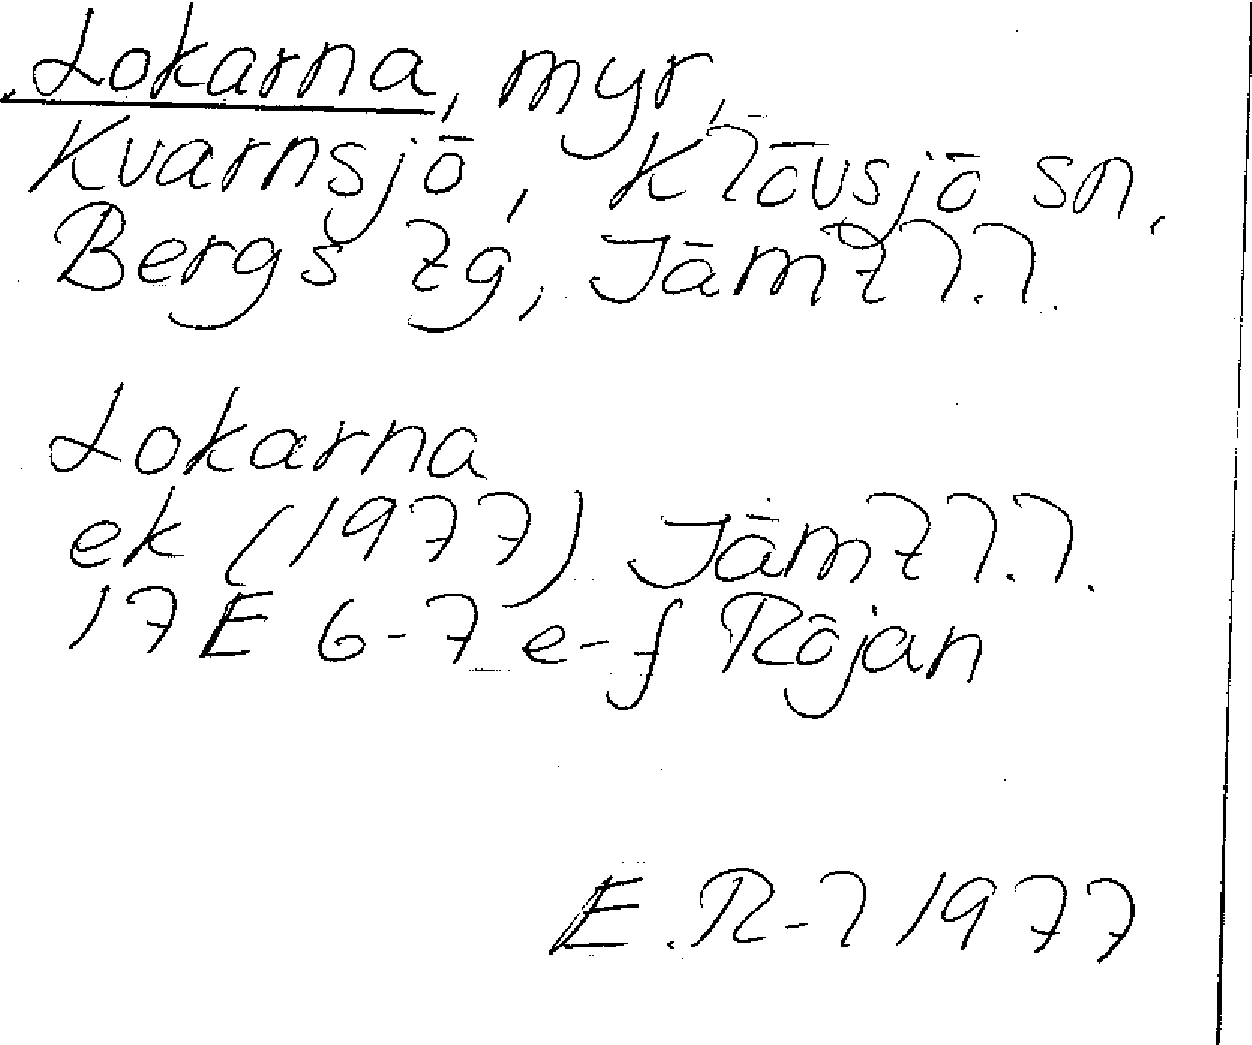 Lokarna, myr,
Kvarnsjö, Klövsjö sn,
Bergs tg, Jämtl.l.
Lokarna
ek (1977) Jämtl.l.
17 E 6-7 e-f Röjan
E.R-l 1977